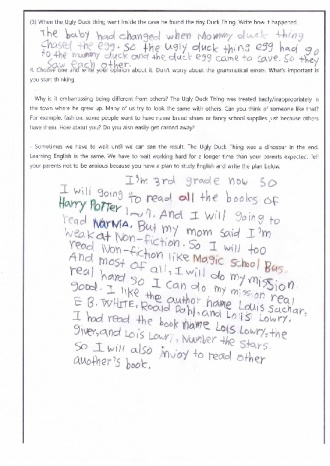 (3) When the Ugly Duck thing went inside the case he found the tiny Duck Thing. Write how it happened.
The baby had changed when Mommy duck thing
chased the egg. so the ugly duck thing egg had go
to the mummy duck and the duck egg came to save. So they
saw each other.
4. Choose one and write your opinion about it. Don't worry about the grammatical sense. What's important is
you start thinking.
- Why is it embarrassing being different from others? The Ugly Duck Thing was treated badly/inappropriately in
the town where he grew up. Many of us try to look the same with others. Can you think of someone like that?
For example, fashion, some people want to have name brand shoes or fancy school supplies just because others
have them. How about you? Do you also easily get carried away?
- Sometimes we have to wait until we can see the result. The Ugly Duck Thing was a disaster in the end.
Learning English is the same. We have to wait working hard for a longer time than your parents expected. Tell
your parents not to be anxious because you have a plan to study English and write the plan below.
I'm 3rd grade now so
I will going to read all the books of
Harry Potter And I will going to
read NARNIA. But my mom said I'm
weak at Non-fiction. So I will too
read Non-fiction like Magic School Bus.
And most of all, I will do my mission
real hard so I can do my mission real
good. I like the author name Louis Sachar,
E.B. WHITE, Roald Dahl, and Lois Lowry.
I had read the book name Lois Lowry, the
giver, and Lois Lowri, Number the stars.
So I will also injoy to read other
auother's book.